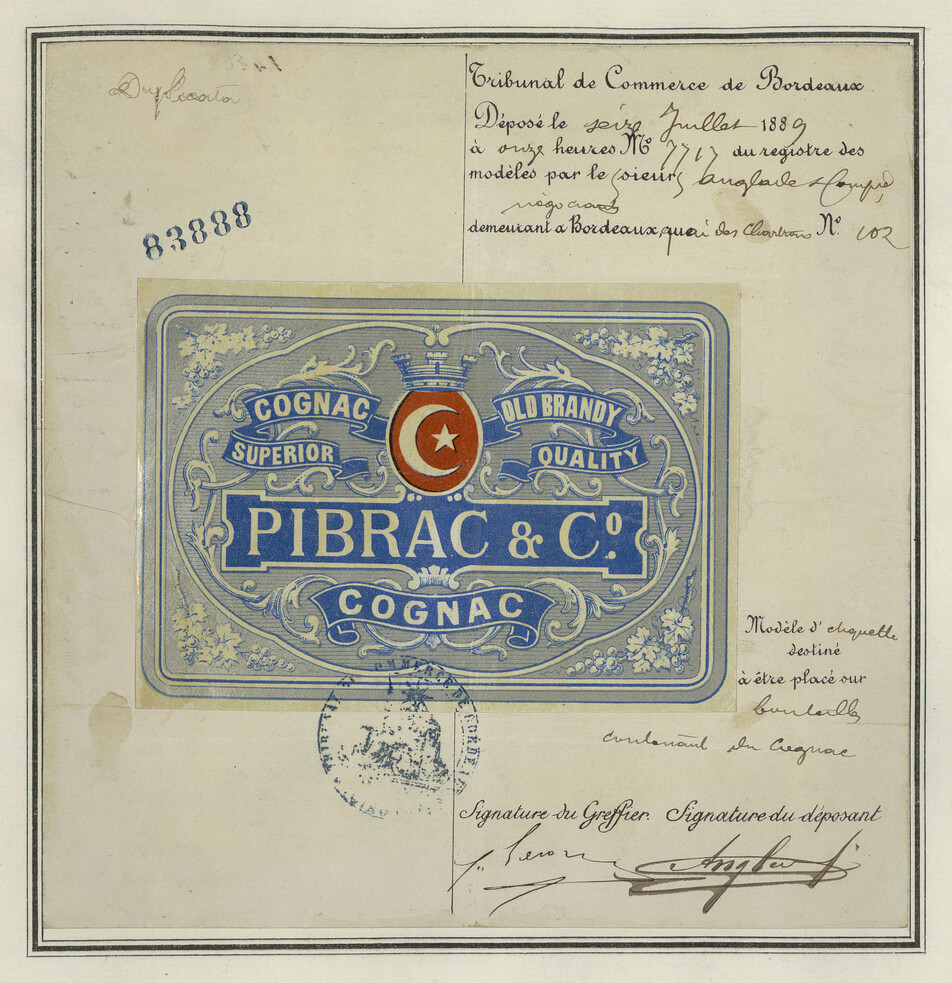 Duplicata
Tribunal de Commerce de Bordeaux
Déposé le seize Juillet 1889
à onze heures Nº 7717 du registre des
modèles par le sieurs Anglade & Compie,
négociants
demeurant a Bordeaux, quai des Chartrons Nº 102
83888
COGNAC OLD BRANDY
SUPERIOR QUALITY
PIBRAC & Cº.
COGNAC
Modèle d'etiquette
destiné
à être placé sur
bouteilles
contenant du Cognac
TRIBUNAL DE COMMERCE DE BORDEAUX
Signature du Greffier. Signature du déposant
Anglade